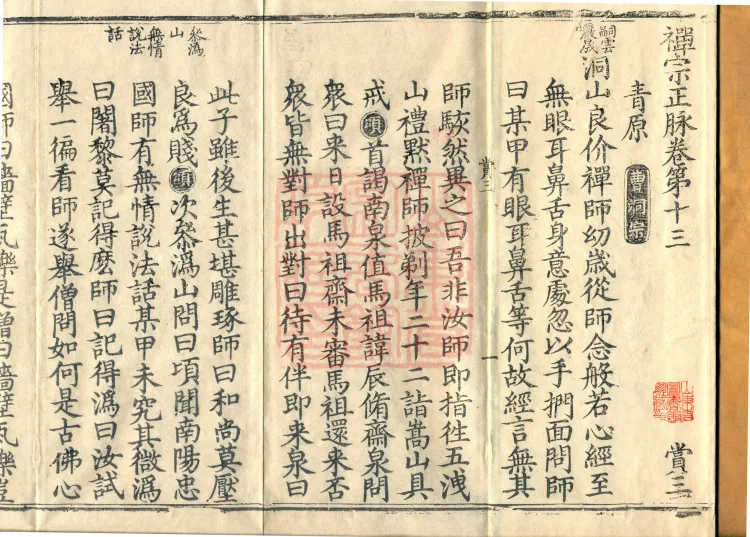 禪宗正脉卷第十三
賞三
青原
曹洞宗
嗣雲
巖晟
洞山良价禪師幼歲從師念般若心經至
無眼耳鼻舌身意處忽以手捫面問師
曰某甲有眼耳鼻舌等何故經言無其
賞三
一
師駭然異之曰吾非汝師即指往五洩
山禮默禪師披剃年二十二詣嵩山具
戒頌首謁南泉值馬祖諱辰俻齋泉問
衆曰来日設馬祖齋未審馬祖還来否
衆皆無對師出對曰待有伴即来泉曰
此子雖後生甚堪雕琢師曰和尚莫壓
叅溈
山
無情
說法
話
良爲賤頌次叅溈山問曰頃聞南陽忠
國師有無情說法話某甲未究其微溈
曰闍黎莫記得麽師曰記得溈曰汝試
舉一徧看師遂舉僧問如何是古佛心
國師曰墻壁瓦礫是僧曰墻壁瓦礫豈